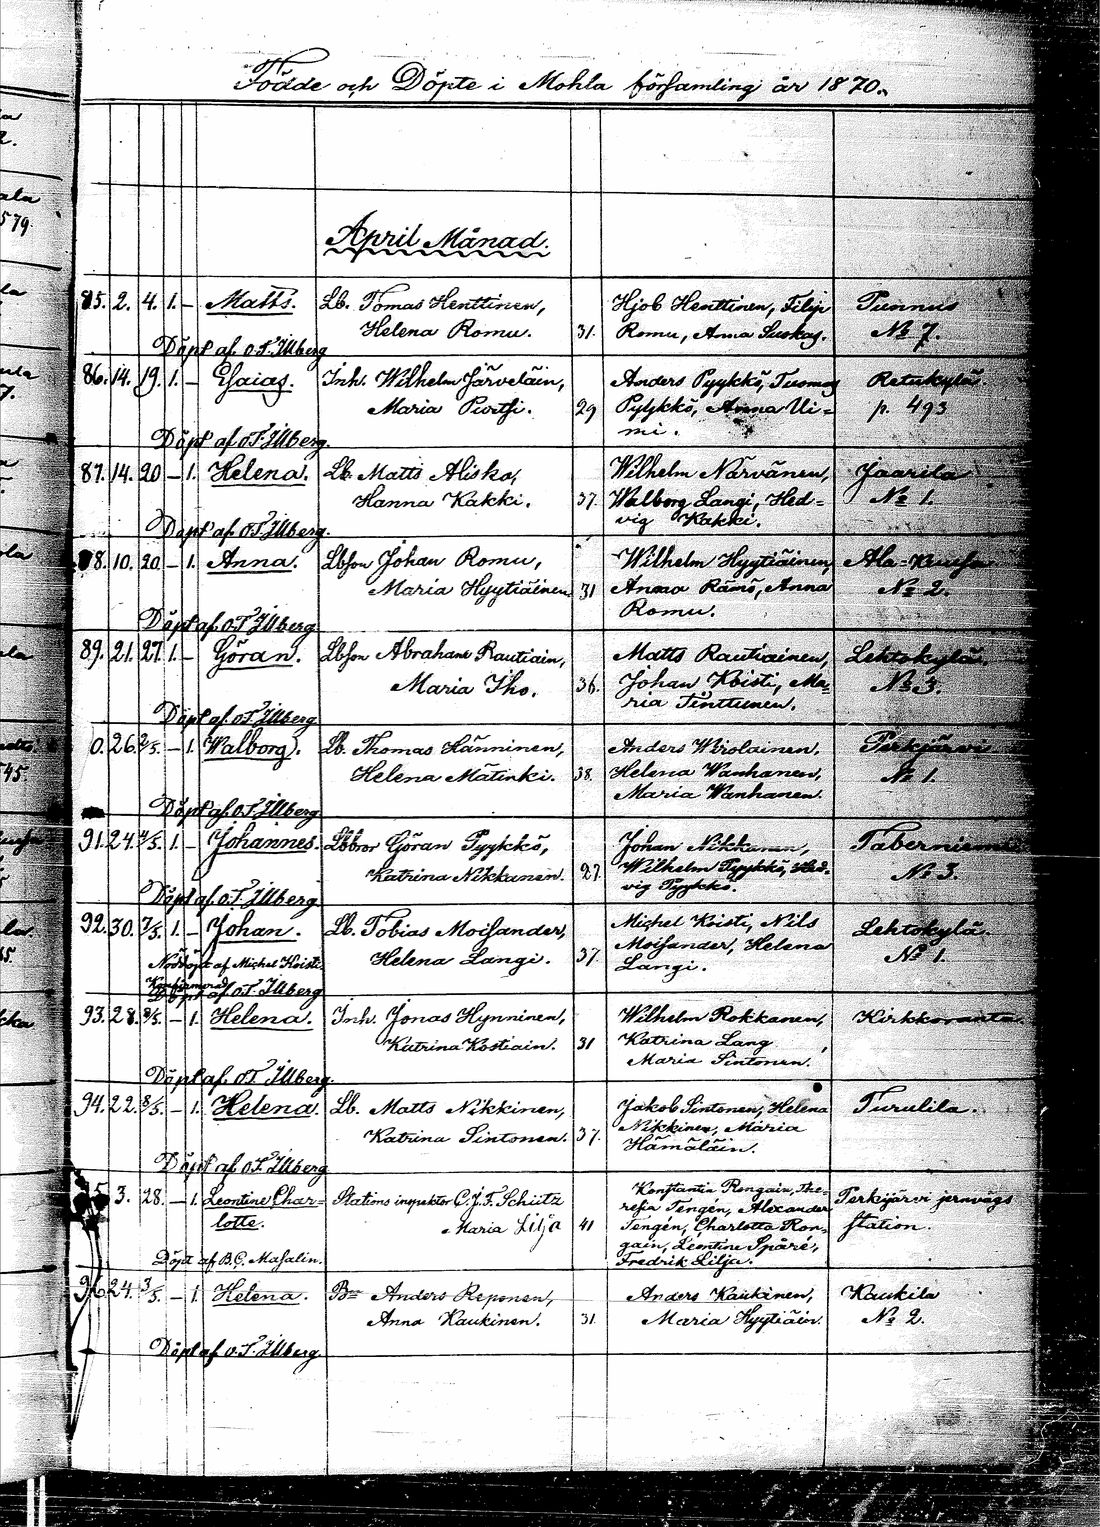 Födde och Döpte i Mohla församling år 1870.
April Månad.
85. 2. 4. 1. – Matts. Lb. Tomas Henttinen, Hjob Henttinen, Filip Punnus
Helena Romu. 31. Romu, Anna Suokas. No 7.
Döpt af O.F. Illberg
86. 14. 19. 1. – Esaias. Inh. Wilhelm Järveläin, Anders Pyykkö, Tuomas Retukylä.
Maria Purtsi. 29 Pyykkö, Anna Ui= p. 493
mi.
Döpt af O.F. Illberg.
87. 14. 20 – 1. Helena. Lb. Matts Aliska, Wilhelm Närvänen, Jaarila
Hanna Kakki. 37. Walborg Langi, Hed= No 1.
vig Kakki.
Döpt af O.F. Illberg.
88. 10. 20. – 1. Anna. Lbson Johan Romu, Wilhelm Hyytiäinen, Ala=Kuusa
Maria Hyytiäinen. 31 Anna Rämö, Anna No 2.
Romu.
Döpt af O.F. Illberg
89. 21. 27. 1. – Göran. Lbson Abraham Rautiain, Matts Rautiainen, Lehtokylä.
Maria Iho. 36. Johan Koisti, Ma= No 3.
ria Tinttunen.
Döpt af O.F. Illberg
0. 26. 2/5. – 1. Walborg. Lb. Thomas Hänninen, Anders Wirolainen. Perkjärvi
Helena Mätinki. 38. Helena Wanhanen, No 1.
Maria Wanhanen.
Döpt af O.F. Illberg
91. 24. 4/5. 1. – Johannes. Lbbror Göran Pyykkö, Johan Nikkanen, Taberniemi
Katrina Nikkanen. 27. Wilhelm Pyykkö, Hed= No 3.
vig Pyykkö.
Döpt af O.F. Illberg
92. 30. 7/5. 1. – Johan. Lb. Tobias Moisander, Michel Koisti, Nils Lehtokylä.
Helena Langi. 37. Moisander, Helena No 1.
Langi.
Nöddöpt af Michel Koisti.
Konfirmerad af O.F. Illberg
93. 28. 8/5. – 1. Helena. Inh. Jonas Hynninen, Wilhelm Rokkanen, Kirkkoranta.
Katrina Kostiain. 31 Katrina Lang,
Maria Sintonen.
Döpt af O.F. Illberg.
94. 22. 8/5. – 1. Helena. Lb. Matts Nikkinen, Jakob Sintonen, Helena Turulila.
Katrina Sintonen. 37. Nikkinen, Maria
Hämäläin.
Döpt af O.F. Illberg
5 3. 28. – 1. Leontine Char= Stations inspektor C.J.F. Schütz Konstantin Rongain, The= Perkjärvi jernvägs
lotte. Maria Lilja 41 resia Tengén, Alexander station.
Tengén, Charlotta Ron=
gain, Leontine Spåre,
Fredrik Lilja.
Döpt af B.C. Masalin.
96. 24. 3/5. – 1. Helena. Bm Anders Reponen, Anders Kaukinen, Kaukila
Anna Kaukinen. 31. Maria Hyytiäin. No 2.
Döpt af O.F. Illberg.